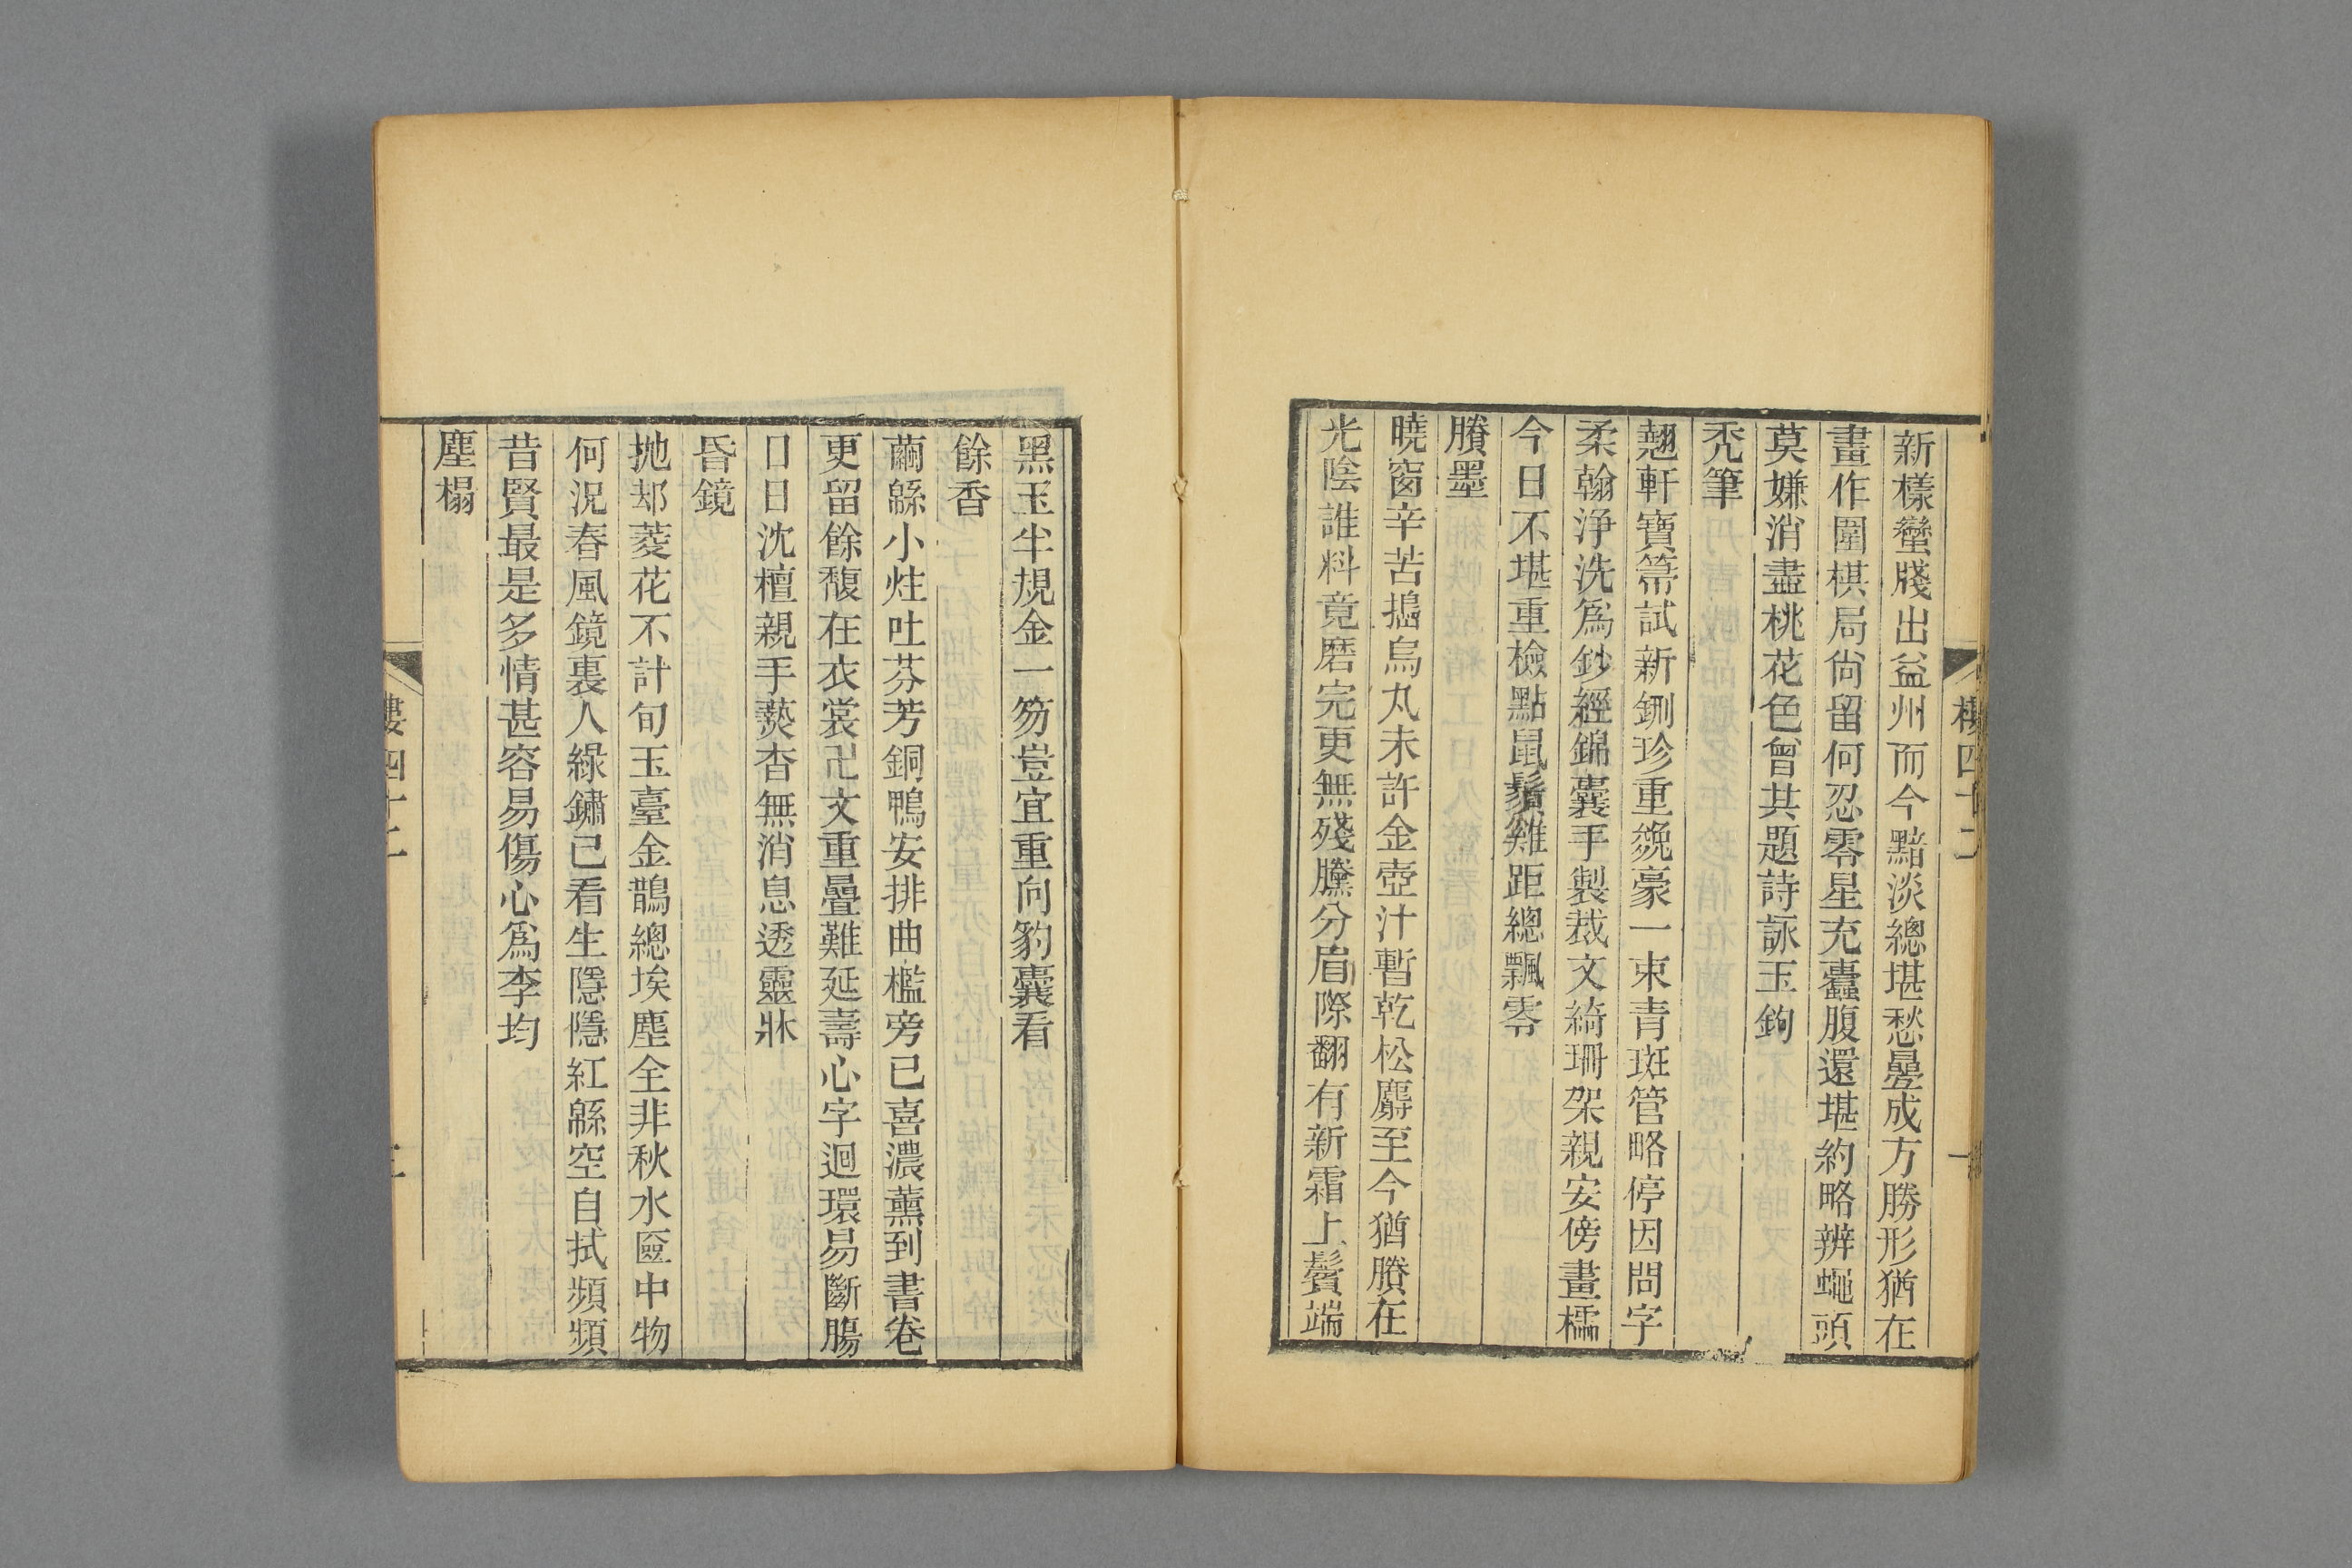 新樣蠻牋出益州而今黯淡總堪愁疊成方勝形猶在
畫作圍棋局尙留何忍零星充蠹腹還堪約略辨蠅頭
莫嫌消盡桃花色曾共題詩詠玉鉤
禿筆
翹軒寶帚試新鉶珍重纔豪一束青斑管略停因問字
柔翰浄洗爲鈔經錦囊手製裁文綺珊架親安傍畫櫺
今日不堪重檢點鼠鬚雞距總飄零
賸墨
曉窗辛苦搗烏丸未許金壺汁暫乾松麝至今猶賸在
光陰誰料竟磨完更無殘騰分眉際翻有新霜上鬢端
黑玉半規金一笏豈宜重向豹囊看
餘香
繭緜小炷吐芬芳銅鴨安排曲檻旁已喜濃薰到書卷
更留餘馥在衣裳卍文重疊難延壽心字迴環易斷腸
日日沈檀親手爇杳無消息透靈牀
昏鏡
拋却菱花不計旬玉臺金鵲總埃塵全非秋水匳中物
何況春風鏡裏人綠鏽已看生隱隱紅緜空自拭頻頻
昔賢最是多情甚容易傷心爲李均
塵榻